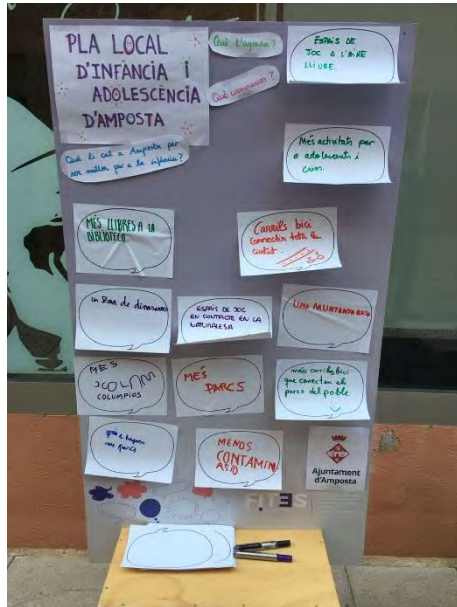 PLA LOCAL
D'INFÀNCIA i
ADOLESCÈNCIA
D'AMPOSTA
Què t'agrada?
Què canviaries?
Què li cal a Amposta per
ser millor per a la infància?
ESPAIS DE
JOC A L'AIRE
LLIURE.
Més activitats per
a adolescents i
MÉS LLIBRES A LA
BIBLIOTECA
Carrils bici
connectin tota la
ciutat
un de dinosaures
ESPAIS DE JOC
EN CONTACTE EN LA
NATURALESA
UNA MUNTANYA RUSA
MES
COLUMPIOS
MÉS
PARCS
més carrils bici
que conecten els
parcs del poble
que
mes parcs
MENOS
CONTAMIN
ASIO
Ajuntament
d'Amposta
FITES